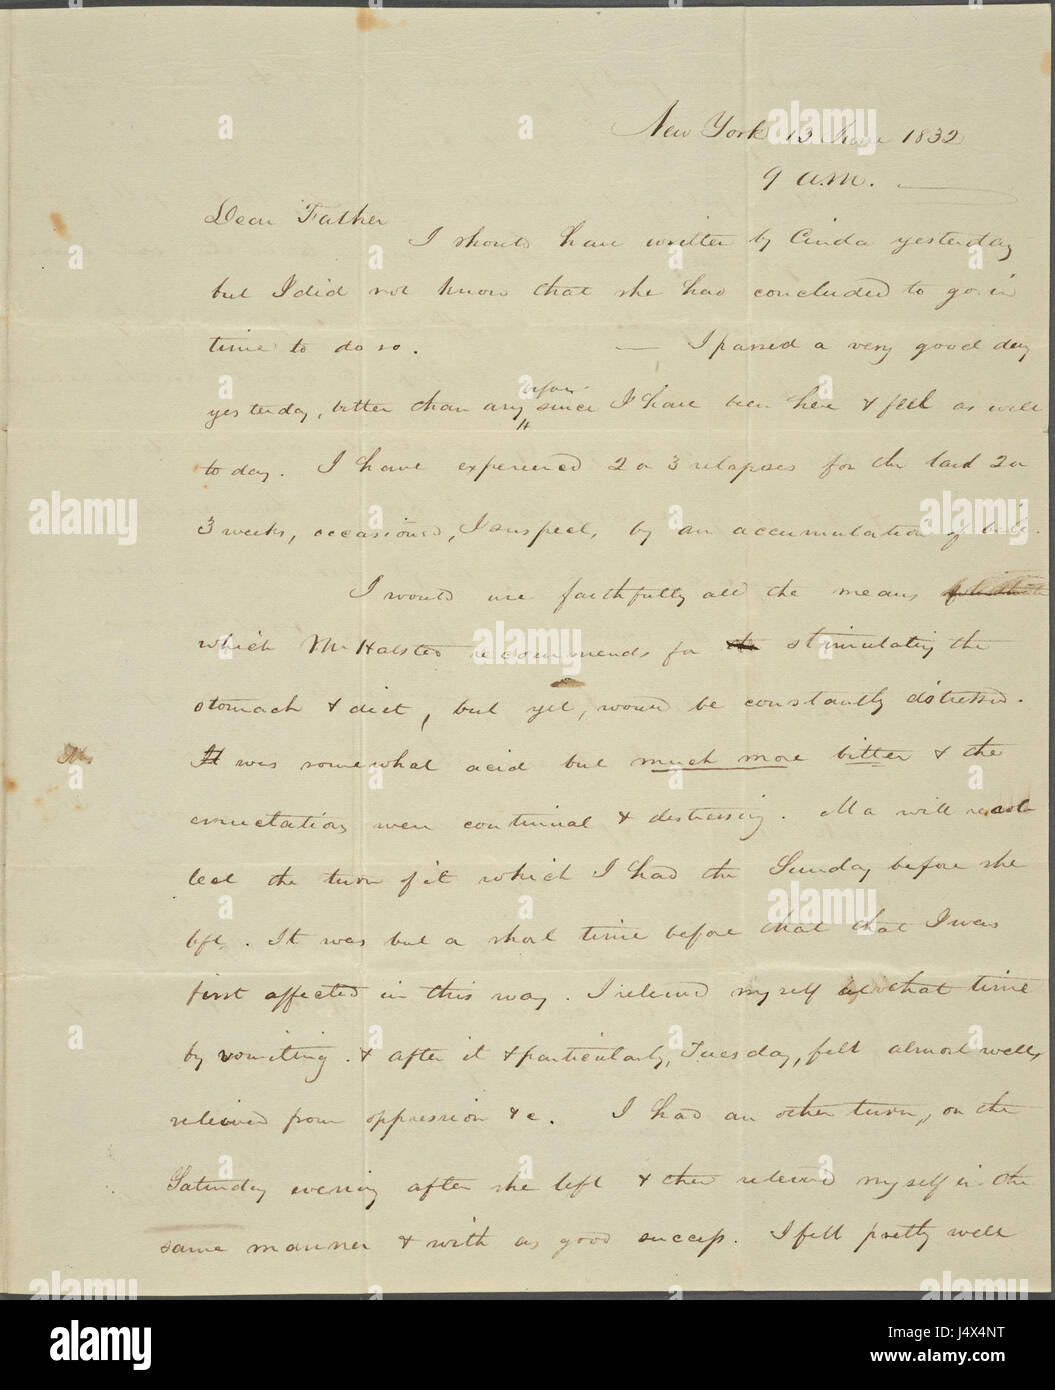 New York 13 June 1832
9 a.m.
Dear Father
I should have written by Cinda yesterday
but I did not know that she had concluded to go in
time to do so. — I passed a very good day
before
yesterday, better than any since I have been here & feel as well
to day. I have experienced 2 or 3 relapses for the last 2 or
3 weeks, occasioned, I suspect, by an accumulation of bile.
I would use faithfully all the means
which Mr Halsted recommends for the stimulating the
stomach & diet, but yet, would be constantly distressed.
Its
It was somewhat acid but much more bitter & the
eructations were continual & distressing. Ma will recol
lect the turn of it which I had the Sunday before she
left. It was but a short time before that that I was
first affected in this way. I relieved myself at that time
by vomiting. & after it & particularly, Tuesday, felt almost well,
relieved from oppression &c. I had an other turn, on the
Saturday evening after she left & then relieved myself in the
same manner & with as good success. I felt pretty well
alamy
alamy
alamy
alamy
alamy
alamy
alamy
a
a
a
a
a
a
a
a
alamy
Image ID: J4X4NT
www.alamy.com